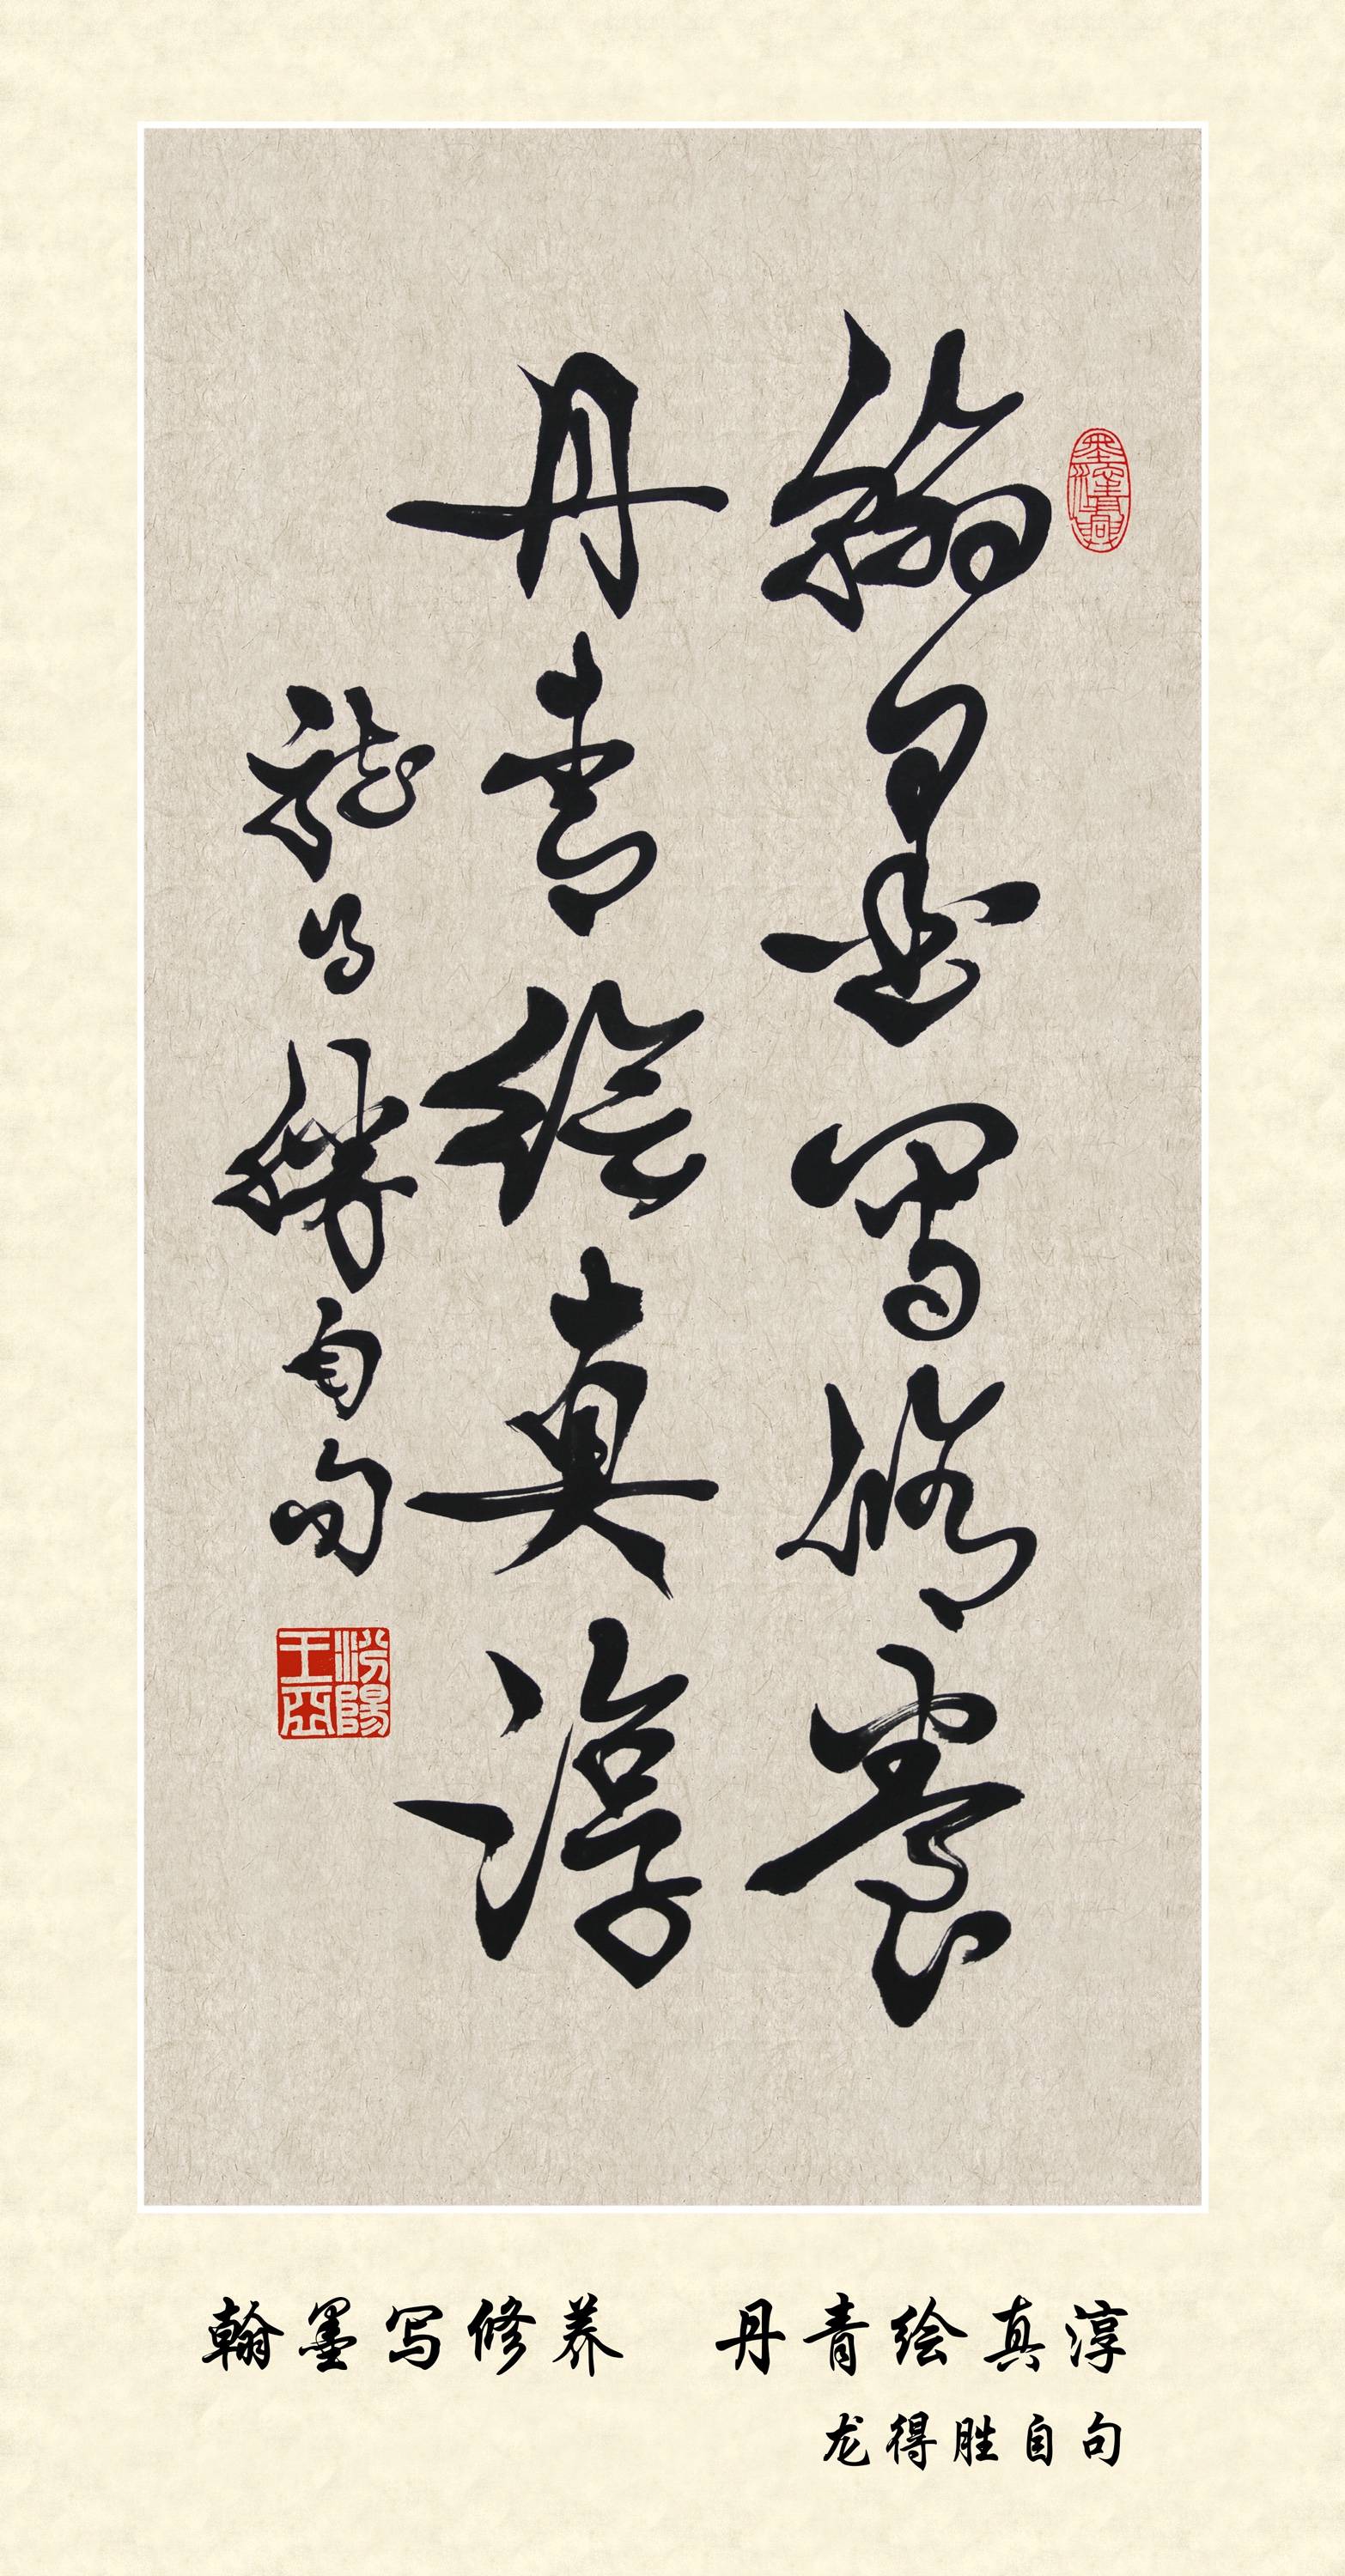 翰墨寫修養
丹青绘真淳
龍得勝自句
汾陽
王岳
翰墨写修养 丹青绘真淳
龙得胜自句